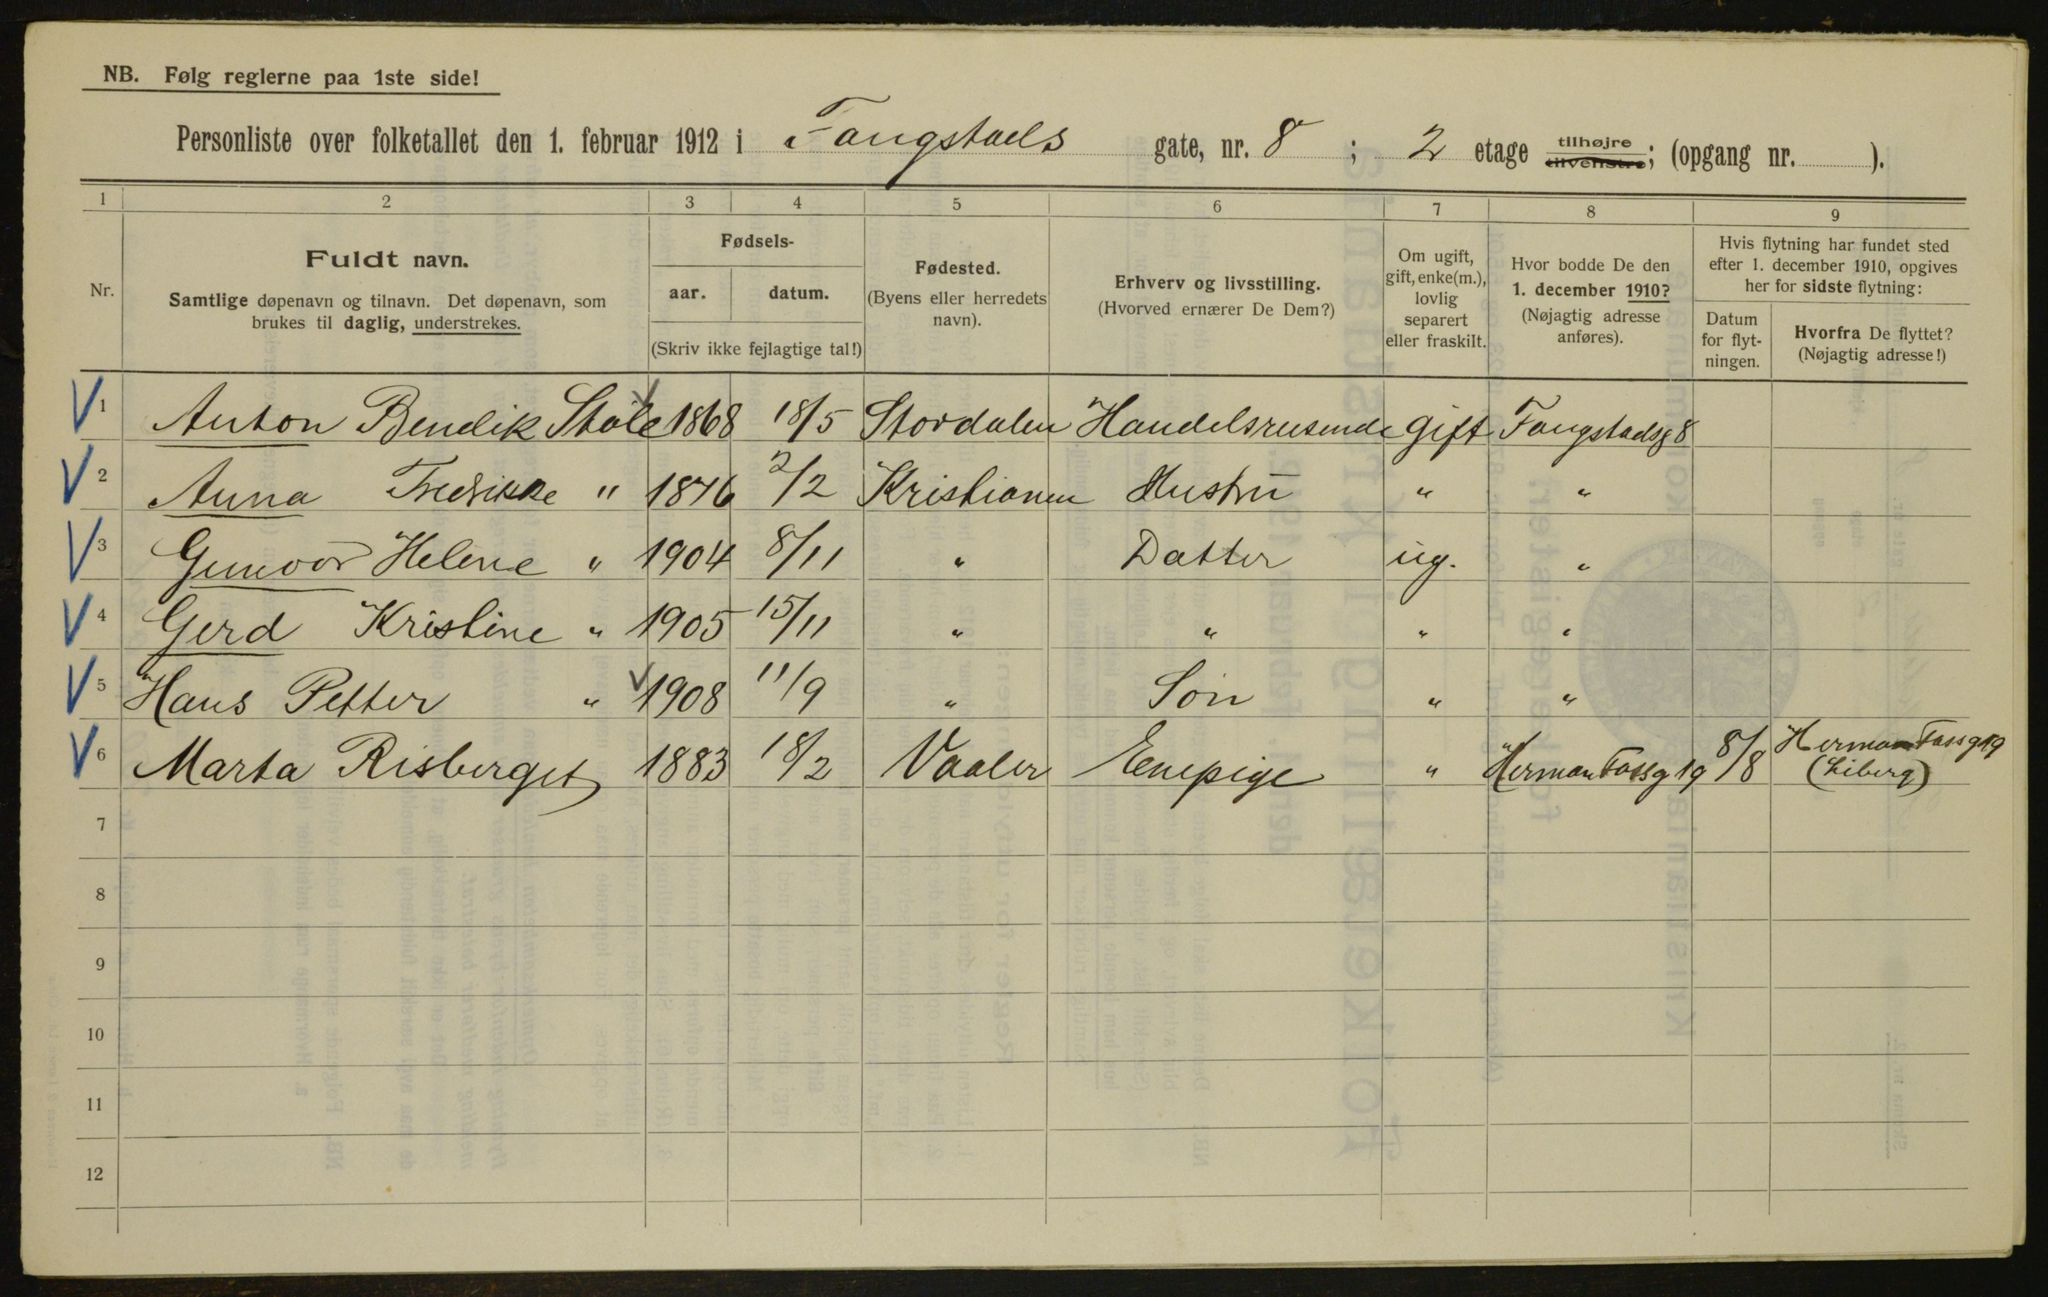 NB. Følg reglerne paa 1ste side!
Personliste over folketallet den 1. februar 1912 i Fangstads gate, nr. 8 ; 2 etage tilhøjre tilvenstre; (opgang nr. ).
1 2 3 4 5 6 7 8 9
Nr.
Fuldt navn.
Samtlige døpenavn og tilnavn. Det døpenavn, som
brukes til daglig, understrekes.
Fødsels-
aar. datum.
(Skriv ikke fejlagtige tal!)
Fødested.
(Byens eller herredets
navn).
Erhverv og livsstilling.
(Hvorved ernærer De Dem?)
Om ugift,
gift, enke(m.),
lovlig
separert
eller fraskilt.
Hvor bodde De den
1. december 1910?
(Nøjagtig adresse
anføres).
Hvis flytning har fundet sted
efter 1. december 1910, opgives
her for sidste flytning:
Datum
for flyt-
ningen.
Hvorfra De flyttet?
(Nøjagtig adresse!)
1 Anton Bendik Stole 1868 18/5 Stordalen Handelsreisende gift Fangstadsg 8
2 Anna Fredrikke " 1876 2/2 Kristiania Hustru " "
3 Gunvor Helene " 1904 8/11 " Datter ug. "
4 Gerd Kristine " 1905 15/11 " " " "
5 Hans Petter " 1908 11/9 " Søn " "
6 Marta Risberget 1883 18/2 Vaaler Enepige " Herman Fossg 19 8/8 Herman Fossg 19
(Liberg)
7
8
9
10
11
12